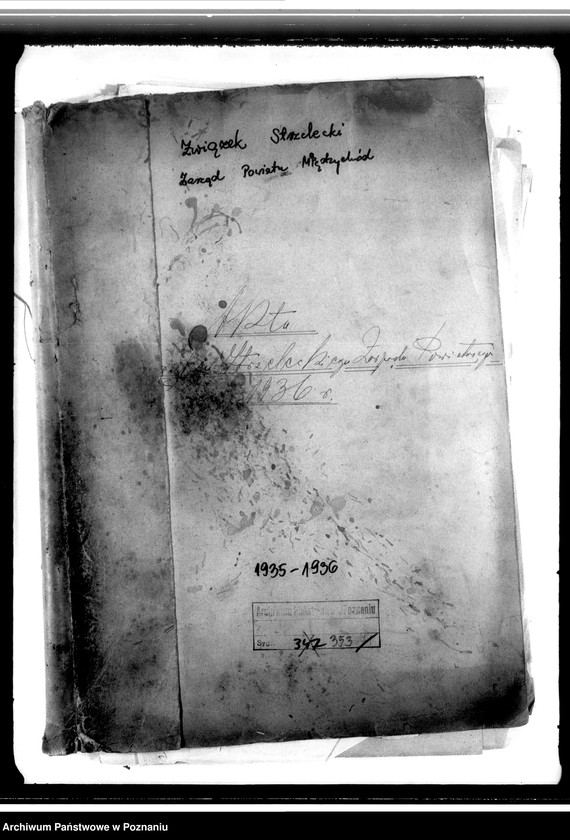 Związek Strzelecki
Zarząd Powiatu Międzychód
Akta
Strzeleckiego Zarządu Powiatowego
1936 r.
1935-1936
Archiwum Państwowe w Poznaniu
Syg. 347 353
Archiwum Państwowe w Poznaniu